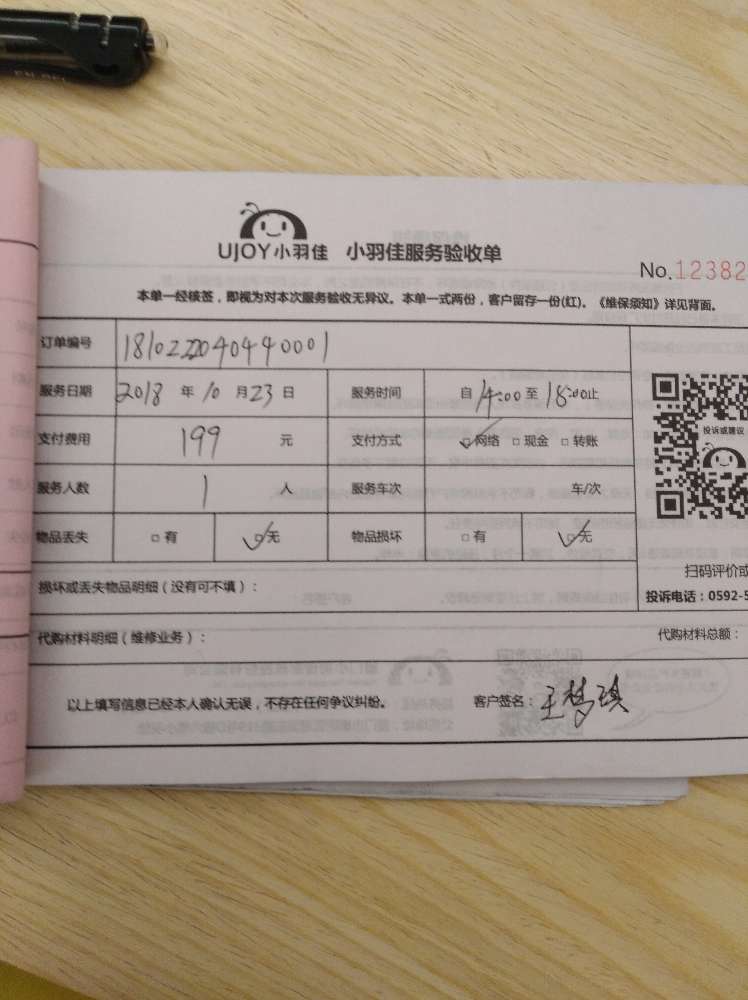 UJOY小羽佳 小羽佳服务验收单
No.12382
本单一经核签，即视为对本次服务验收无异议。本单一式两份，客户留存一份(红)。《维保须知》详见背面。
订单编号 1810222040440001
服务日期 2018 年 10 月 23 日 服务时间 自 14:00 至 18:00止
支付费用 199 元 支付方式 ☑网络 □现金 □转账
服务人数 1 人 服务车次 车/次
物品丢失 □有 ☑无 物品损坏 □有 ☑无
投诉或建议
扫码评价或
损坏或丢失物品明细（没有可不填）：
投诉电话：0592-5
代购材料明细（维修业务）： 代购材料总额：
以上填写信息已经本人确认无误，不存在任何争议纠纷。 客户签名：王梦琪